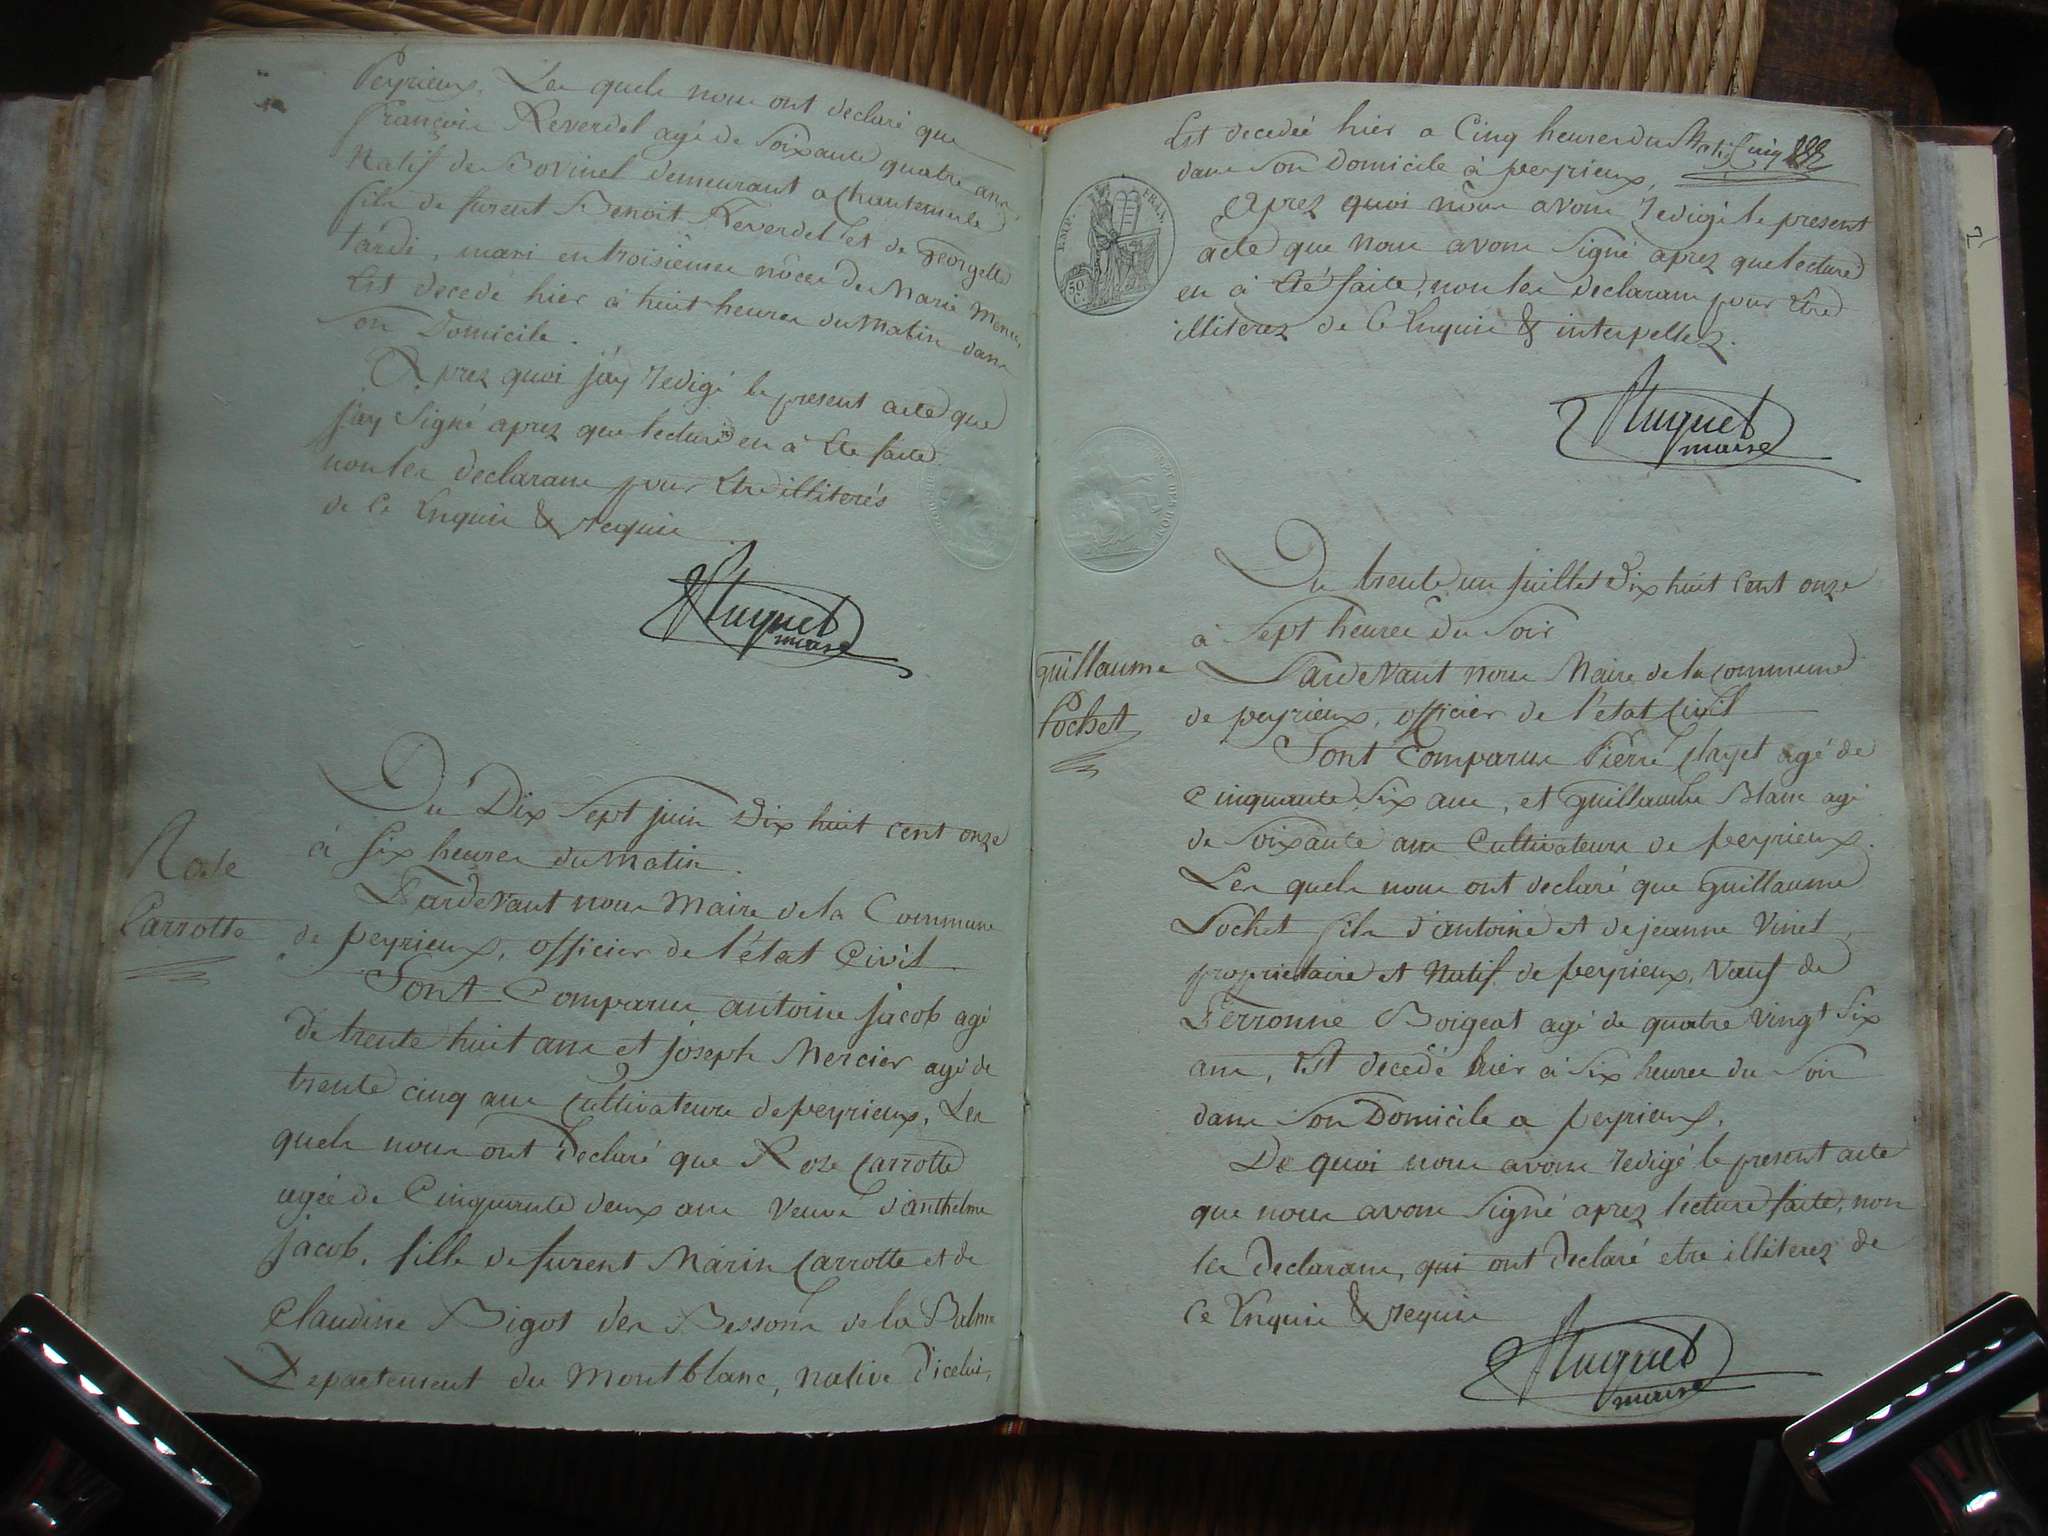 Peyrieux, Les quels nous ont declaré que
François Reverdel agé de Soixante quatre ans,
Natif de Bovinel demeurant a Chantemerle
fils de furent Benoit Reverdel et de Georgette
tardi, mari en troisième nôces de Marie
Est decedé hier à huit heures du Matin dans
Son Domicile.
Aprez quoi j'ay redigé le present acte que
j'ay Signé aprez que lecture en à Eté faite
non les declarans pour Etre illiterés
de ce Enquis & requis
Huguet
maire
Du Dix Sept juin Dix huit cent onze
à Six heures du Matin.
Rose
Carrotte
Pardevant nous Maire de la Commune
de peyrieux, officier de l'état Civil
Sont Comparus antoine jacob agé
de trente huit ans et joseph Mercier agé de
trente cinq ans Cultivateurs de peyrieux, Les
quels nous ont Declaré que Roze Carrotte
agée de Cinquante deux ans Veuve d'anthelme
jacob, fille de furent Marin Carrotte et de
Claudine Bigot des Bessons de la Balme
Departement du Montblanc, native d'icelui,
Est decedeé hier a Cinq heures du
dans Son Domicile à peyrieux,
EMP. FRAN.
50 C.
Aprez quoi nous avons redigé le present
acte que nous avons Signé aprez que lecture
en à Eté faite, non les declarans pour Etre
illiterez de ce Enquis & interpellez.
Huguet
maire
Du trente un juillet Dix huit Cent onze
à Sept heures du Soir
Guillaume
Pochet
Pardevant nous Maire de la commune
de peyrieux, officier de l'état Civil
Sont Comparus Pierre Clayet agé de
Cinquante Six ans, et Guillaume Blanc agé
de Soixante ans Cultivateurs de peyrieux.
Les quels nous ont declaré que Guillaume
Pochet fils d'antoine et de jeanne Vinet,
proprietaire et Natif de peyrieux, Veuf de
Perronne Boigeat agé de quatre Vingt Six
ans, Est decedé hier à Six heures du Soir
dans Son Domicile a peyrieux.
De quoi nous avons redigé le present acte
que nous avons Signé aprez lecture faite, non
les Declarans, qui ont Declaré etre illiterez de
Ce Enquis & requis
Huguet
maire